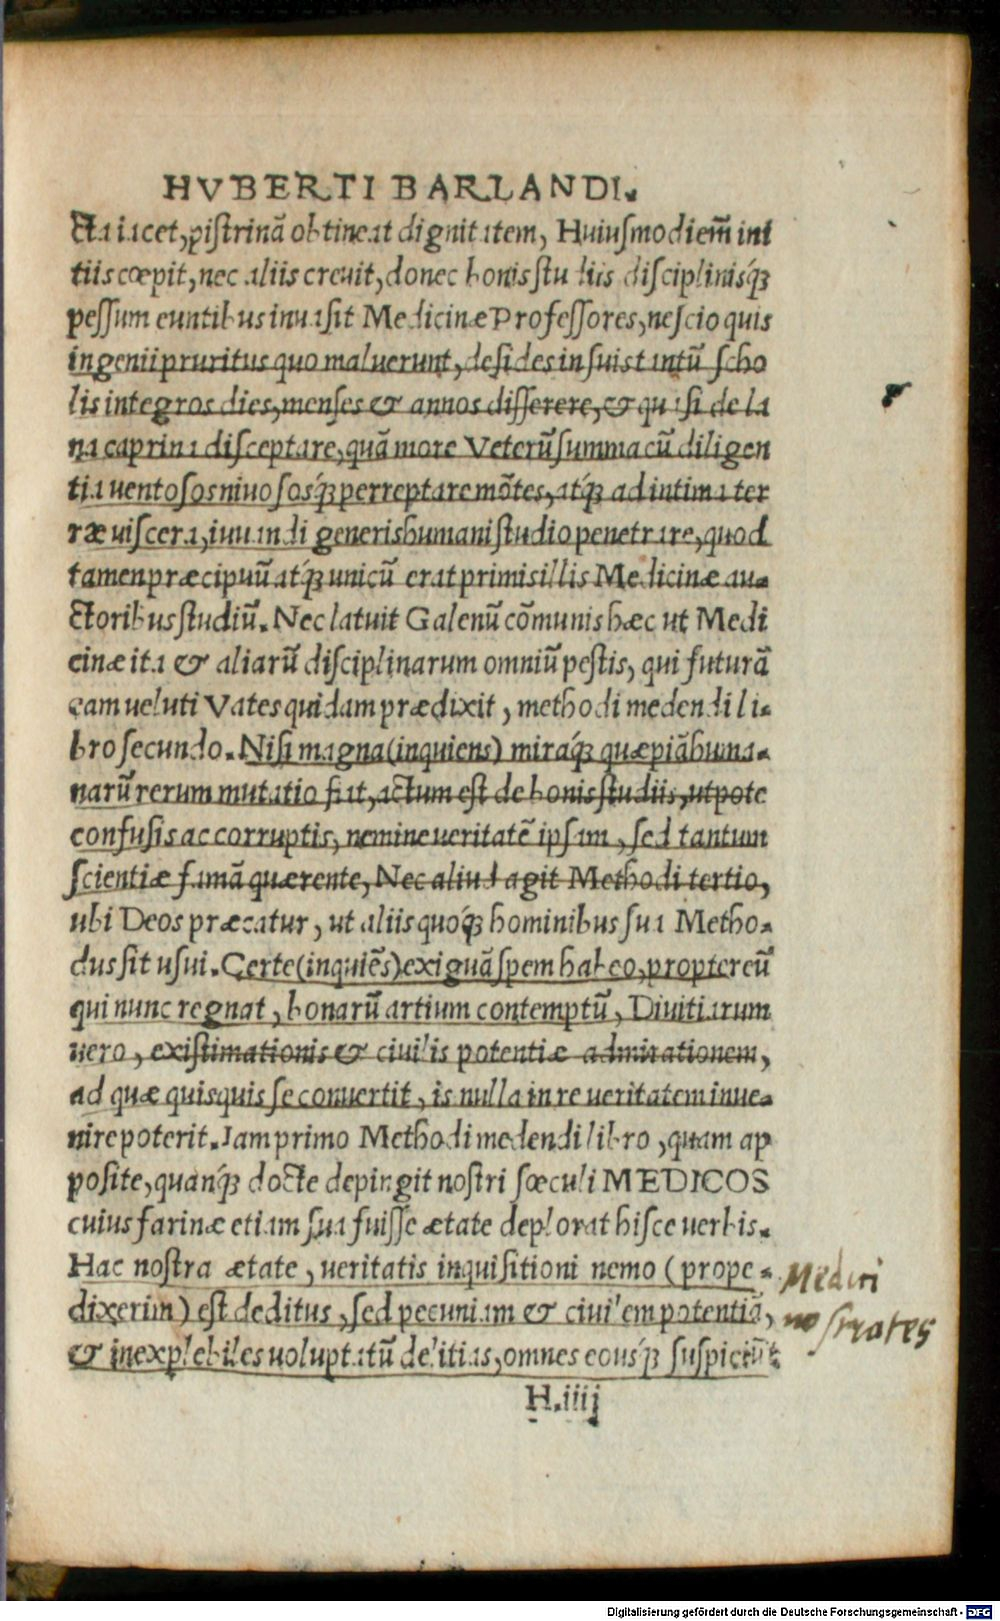 HVBERTI BARLANDI.
cta iacet, pistrinã obtineat dignitatem, Huiusmodi em̃ ini
tiis cœpit, nec aliis creuit, donec bonis studiis disciplinisq́ꝫ
pessum euntibus inuasit Medicinæ Professores, nescio quis
ingenii pruritus quo maluerunt, desides in suis tantũ scho
lis integros dies, menses & annos disserere, & quasi de la
na caprina disceptare, quã more Veterũ summa cũ diligen
tia uentosos niuososq́ꝫ perreptare mõtes, atq́ꝫ ad intima ter
ræ uiscera, iuuandi generis humani studio penetrare, quod
tamen præcipuũ atq́ꝫ unicũ erat primis illis Medicinæ au-
ctoribus studiũ. Nec latuit Galenũ cõmunis hæc ut Medi
cinæ ita & aliarũ disciplinarum omniũ pestis, qui futurã
eam ueluti Vates quidam prædixit, methodi medendi li-
bro secundo. Nisi magna (inquiens) miraq́ꝫ quæpiã huma-
narũ rerum mutatio fiat, actum est de bonis studiis, utpote
confusis ac corruptis, nemine ueritatẽ ipsam, sed tantum
scientiæ famã quærente, Nec aliud agit Methodi tertio,
ubi Deos præcatur, ut aliis quoq́ꝫ hominibus sua Metho-
dus sit usui. Certe (inquiẽs) exiguã spem habeo, propter eũ
qui nunc regnat, bonarũ artium contemptũ, Diuitiarum
uero, existimationis & ciuilis potentiæ admirationem,
ad quæ quisquis se conuertit, is nulla in re ueritatem inue-
nire poterit. Iam primo Methodi medendi libro, quam ap
posite, quanq́ꝫ docte depingit nostri sœculi MEDICOS
cuius farinæ etiam sua fuisse ætate deplorat hisce uerbis.
Hac nostra ætate, ueritatis inquisitioni nemo (prope-
dixerim) est deditus, sed pecuniam & ciuilem potentiã,
& inexplebiles uoluptatũ delitias, omnes eousq́ꝫ suspiciũt
Medici
nostrates
H.iiij
Digitalisierung gefördert durch die Deutsche Forschungsgemeinschaft - DFG